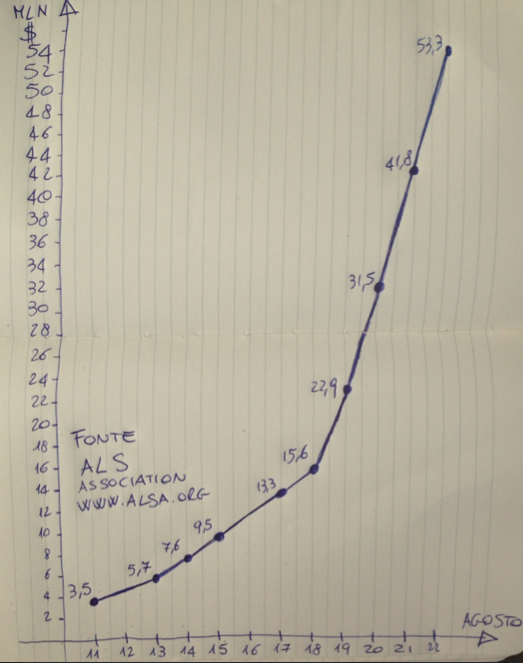 MLN
$
54
52
50
48
46
44
42
40
38
36
34
32
30
28
26
24
22
20
18
16
14
12
10
8
6
4
2
53,3
41,8
31,5
22,9
15,6
13,3
9,5
7,6
5,7
3,5
FONTE
ALS
ASSOCIATION
WWW.ALSA.ORG
AGOSTO
11 12 13 14 15 16 17 18 19 20 21 22